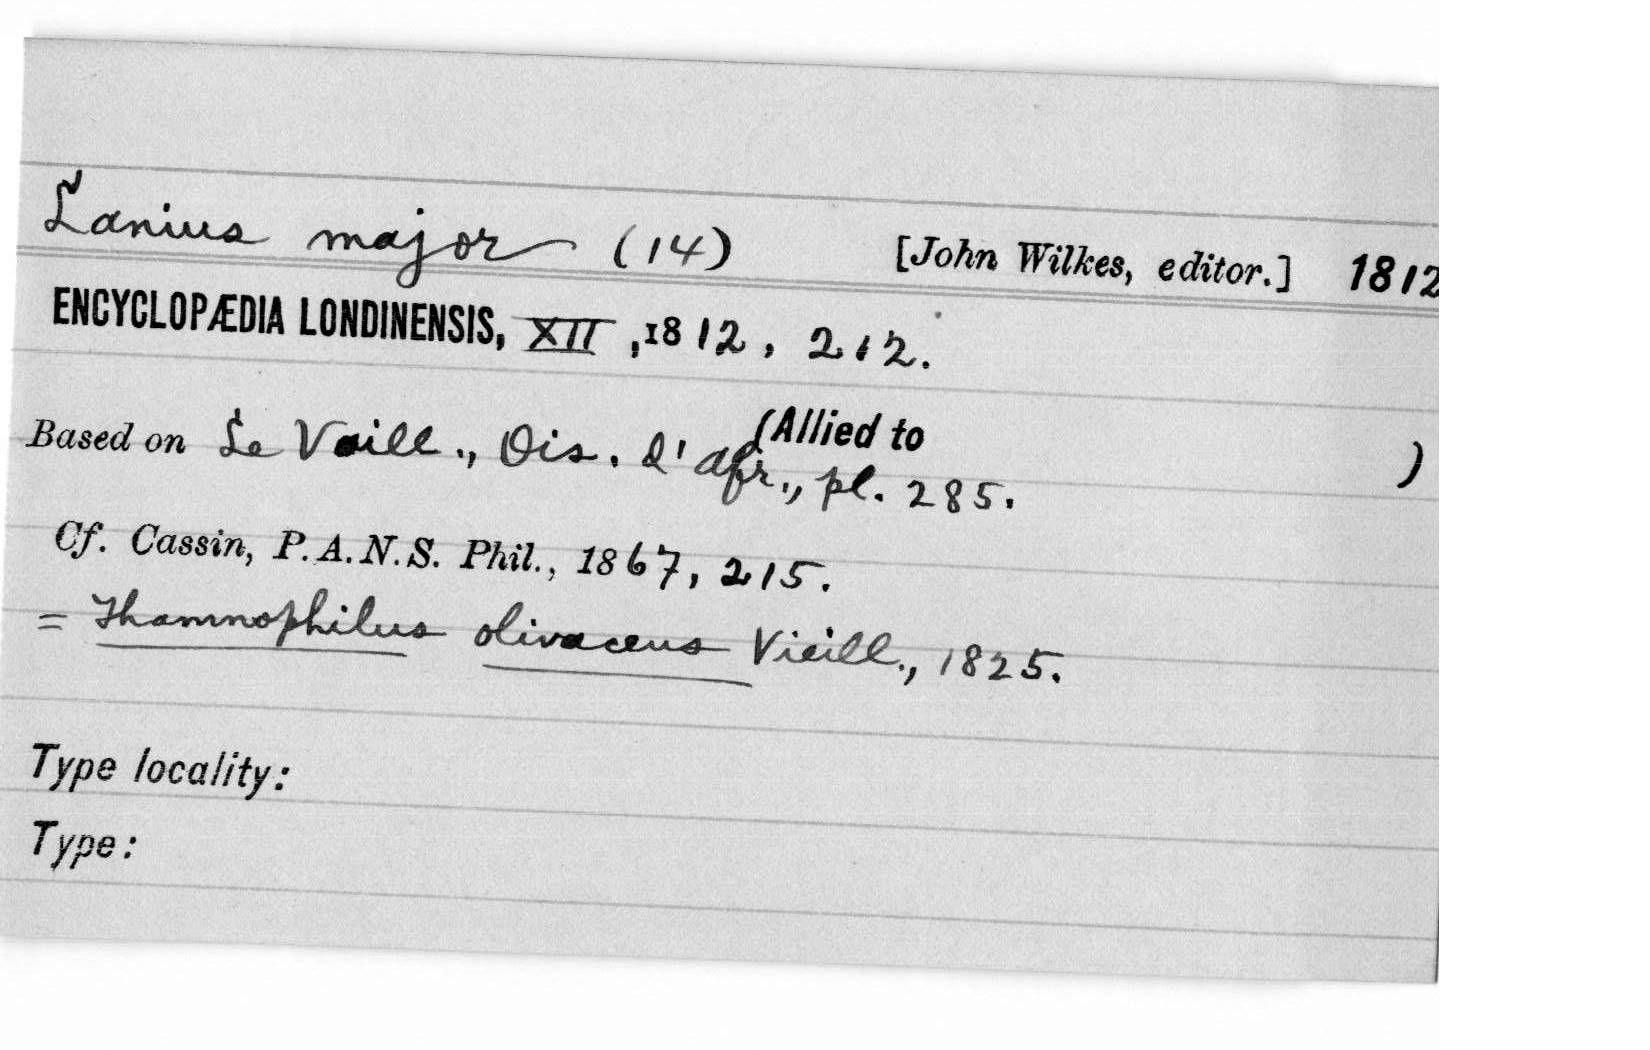 Lanius major (14) [John Wilkes, editor.] 1812
ENCYCLOPÆDIA LONDINENSIS, XII, 1812, 212.
(Allied to )
Based on Le Vaill., Ois. d'Afr., pl. 285.
Cf. Cassin, P. A. N. S. Phil., 1867, 215.
= Thamnophilus olivaceus Vieill., 1825.
Type locality:
Type: